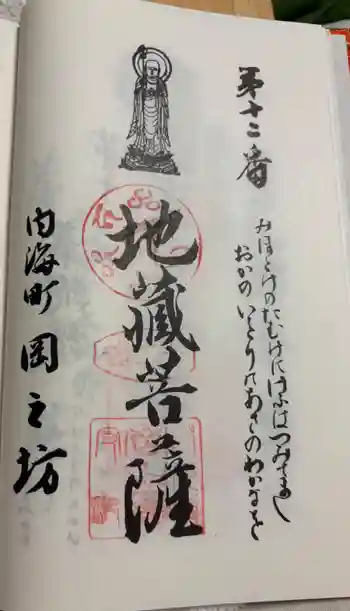 第十二番
みほとけのたむけにけふはつみてまし
おかのいほりのあたのわかなを
地蔵菩薩
内海町 岡之坊